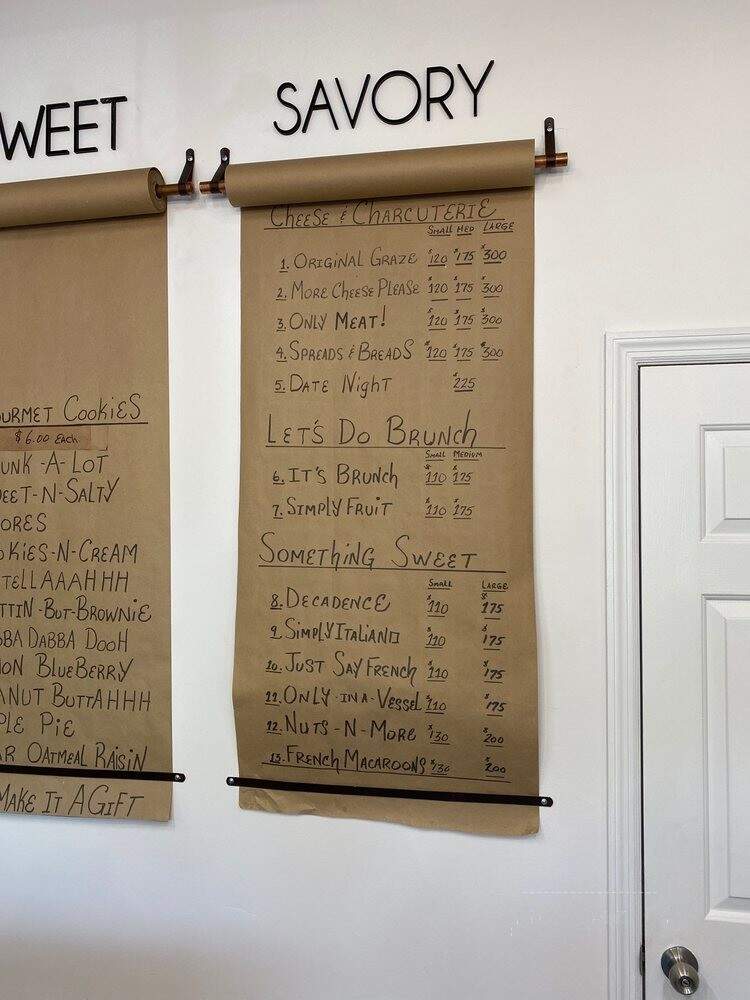 WEET
URMET COOKIES
$6.00 EACH
UNK-A-LOT
EET-N-SALTY
ORES
OKIES-N-CREAM
TELLAAAHHH
TTIN-BUT-BROWNIE
BBA DABBA DOOH
ON BLUEBERRY
ANUT BUTTAHHH
PLE PIE
AR OATMEAL RAISIN
MAKE IT A GIFT
SAVORY
CHEESE & CHARCUTERIE
SMALL MED LARGE
1. ORIGINAL GRAZE $120 $175 $300
2. MORE CHEESE PLEASE $120 $175 $300
3. ONLY MEAT! $120 $175 $300
4. SPREADS & BREADS $120 $175 $300
5. DATE NIGHT $225
LET'S DO BRUNCH
SMALL MEDIUM
6. IT'S BRUNCH $110 $175
7. SIMPLY FRUIT $110 $175
SOMETHING SWEET
SMALL LARGE
8. DECADENCE $110 $175
9. SIMPLY ITALIANO $110 $175
10. JUST SAY FRENCH $110 $175
11. ONLY-IN-A-VESSEL $110 $175
12. NUTS-N-MORE $130 $200
13. FRENCH MACAROONS $130 $200